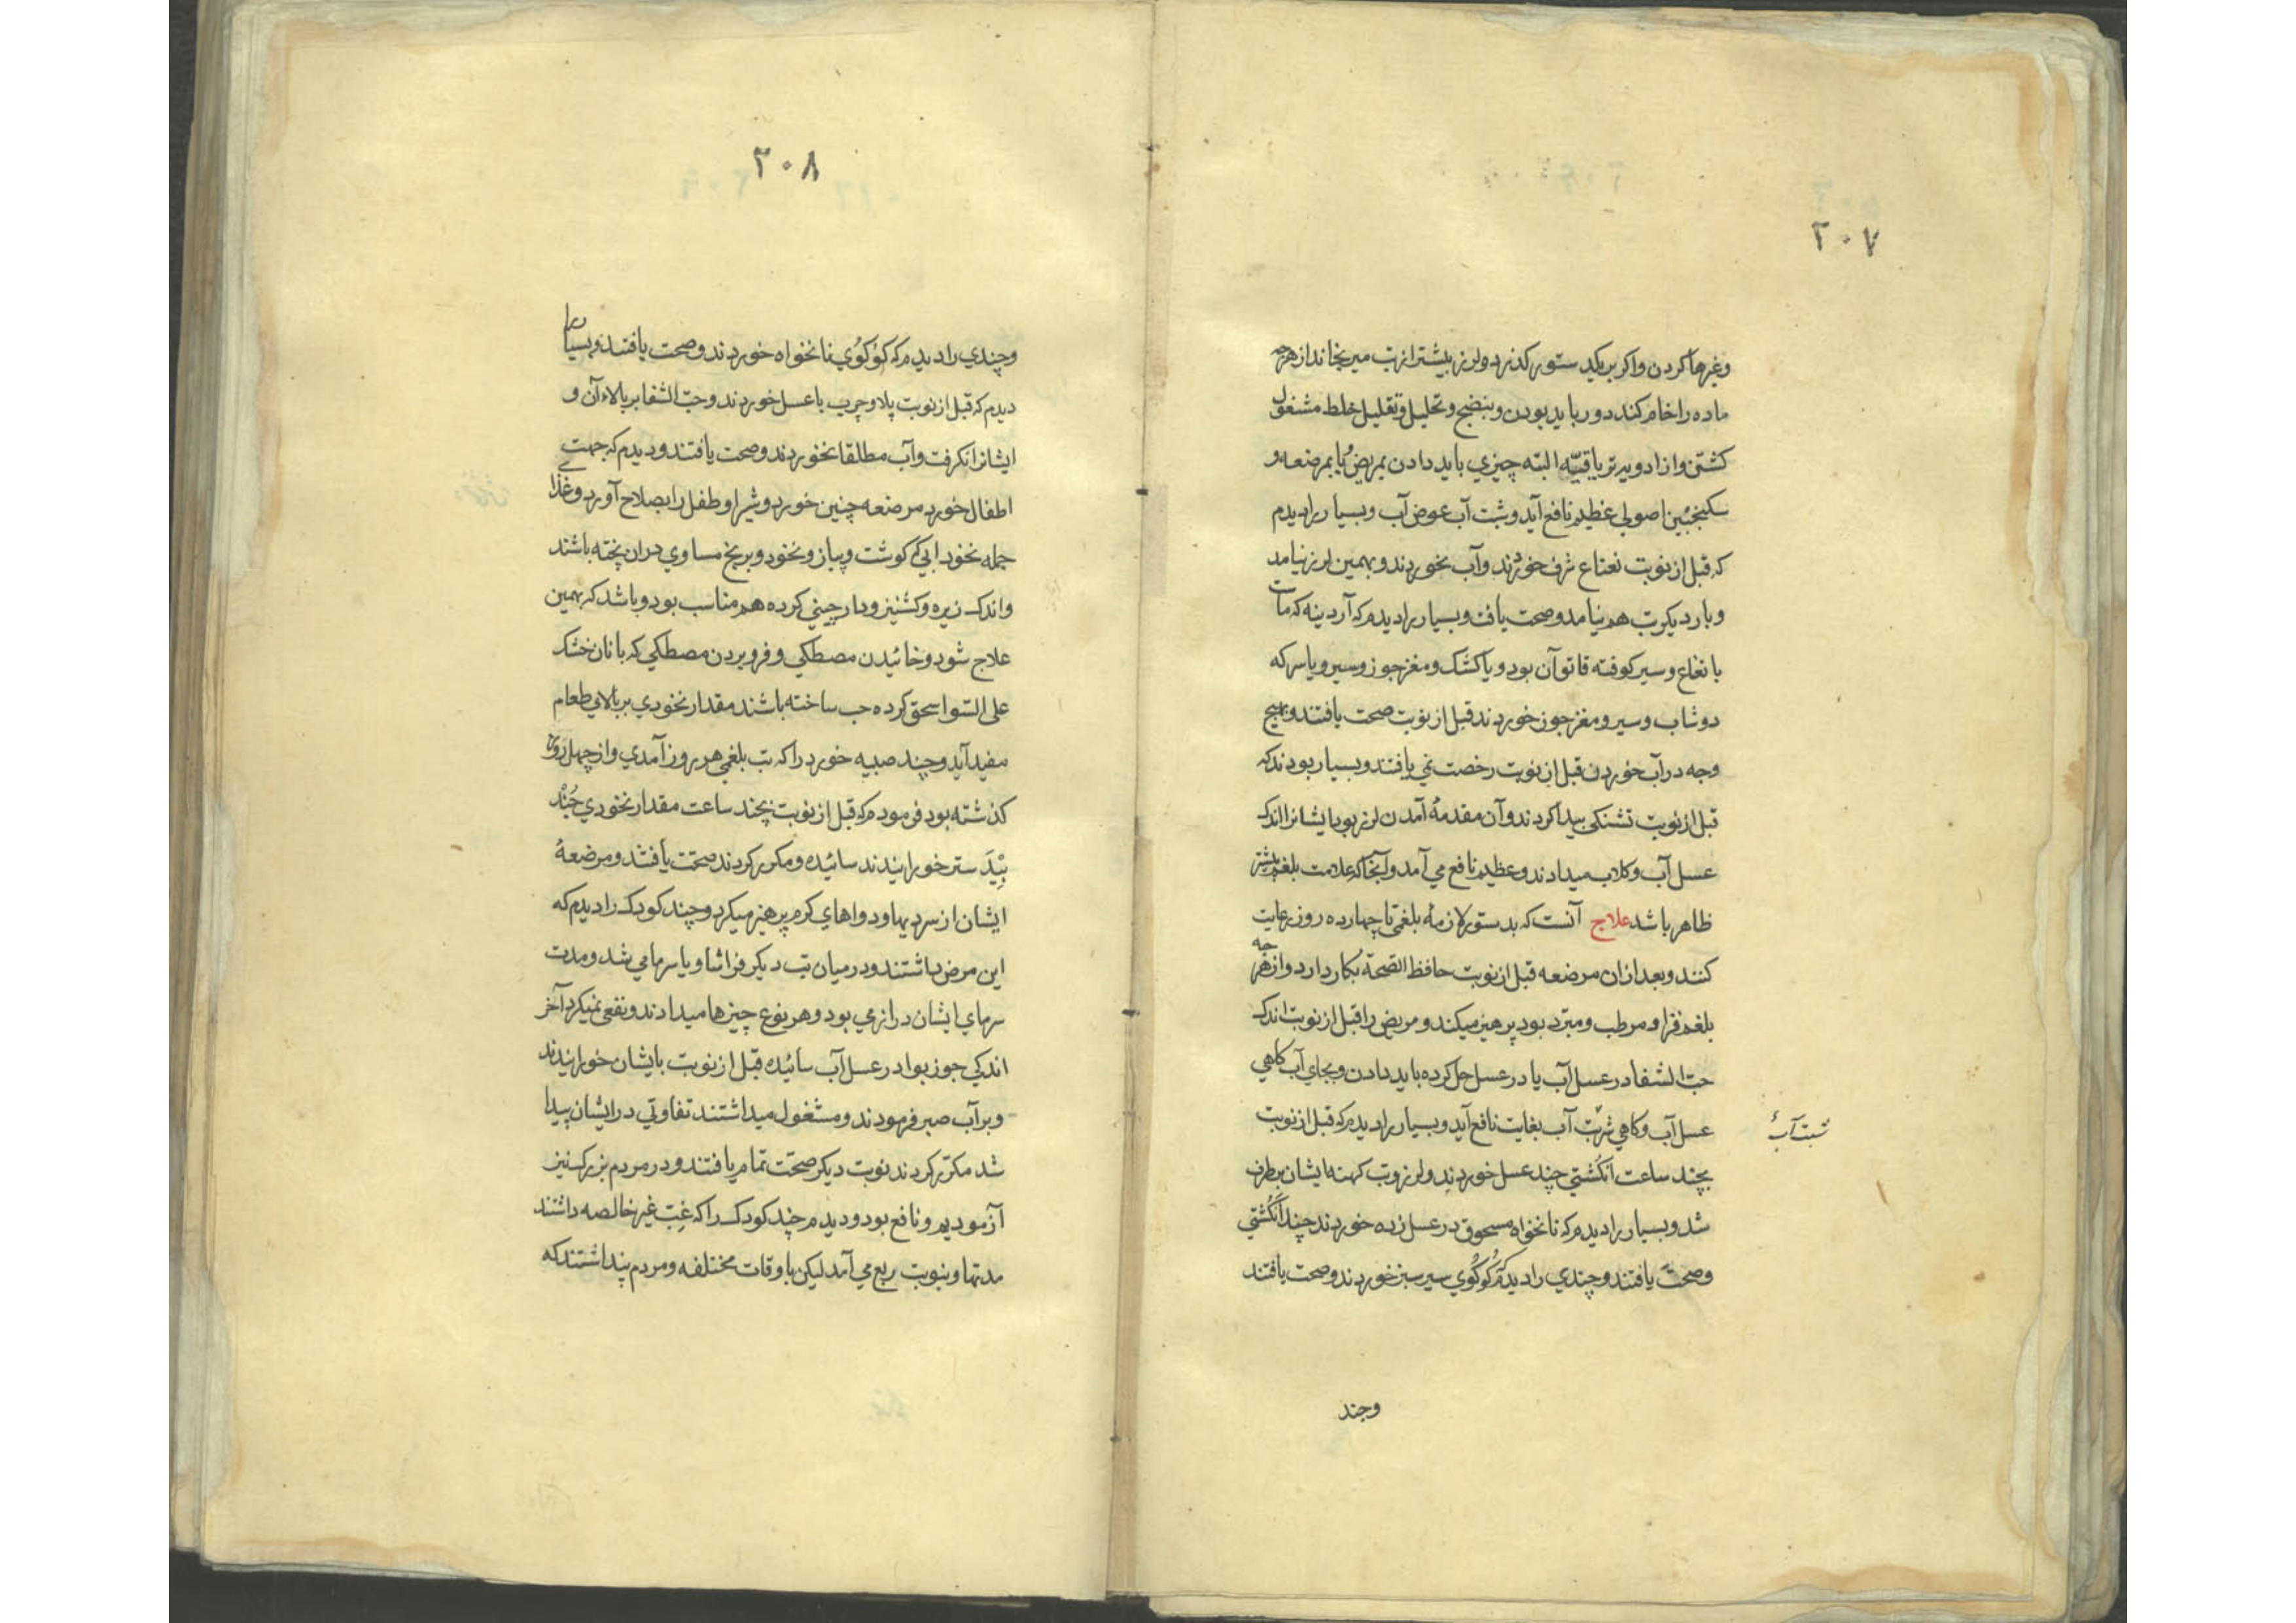 ٢٠٧
وغیرها کردن واکر بریکید ستور کذرد ولرز بیشتر از تب میرنجاند از هرچه
ماده را خام کند دور باید بودن وبنضج وتحلیل وتقلیل خلط مشغول
کشتن واز ادویه تریاقیّه البته چیزي باید دادن بمریض ویا بمرضعه و
سکنجبین اصولي عظیم نافع آید وثبت آب عوض آب وبسیار را دیدم
که قبل از نوبت نعناع ترف خوردند وآب نخوردند وبهمین لرز نیامد
وبار دیکر تب هم نیامد وصحت یافت وبسیار را دیدم که آردینه که مات
با نعناع وسیر کوفته قاتوق آن بود ویا کشک ومغز جوز وسیر ویا سرکه
دوشاب وسیر ومغز جوز خوردند قبل از نوبت صحت یافتند وبهیچ
وجه در آب خوردن قبل از نوبت رخصت نمي یافتند وبسیار بودند که
قبل از نوبت تشنکي پیدا کردند وآن مقدمهٔ آمدن لرز بود ایشانرا اندک
عسل آب وکلاب میدادند وعظیم نافع مي آمد وآنجا که علامت بلغم بیشتر
ظاهر باشد علاج آنست که بدستور لازمهٔ بلغمي تا چهارده روز رعایت
کنند وبعد از ان مرضعه قبل از نوبت حافظ الصحة بکار دارد واز هرچه
بلغم فزا ومرطب ومبرّد بود پرهیز میکند ومریض را قبل از نوبت اندک
حبّ الشفا در عسل آب یا در عسل حل کرده باید دادن وبجاي آب کاهي
عسل آب وکاهي شربت آب بغایت نافع آید وبسیار را دیدم که قبل از نوبت
شبت آب
بچند ساعت انکشتي چند عسل خوردند ولرز وتب کهنه ایشان برطرف
شد وبسیار را دیدم که نانخواه مسحوق در عسل زده خوردند چند انکشتي
وصحت یافتند وچندي را دیدم که کوکوي سیر سبز خوردند وصحت یافتند
وچند
٢٠٨
وچندي را دیدم که کوکوي نانخواه خوردند وصحت یافتند وبسیار را
دیدم که قبل از نوبت پلاو چرب با عسل خوردند وحبّ الشفا بر بالاء آن و
ایشانرا نکرفت وآب مطلقا نخوردند وصحت یافتند ودیدم که جهت
اطفال خورد مرضعه چنین خورد وشیر او طفل را بصلاح آورد وغذا
جمله نخود ابي که کوشت وپیاز ونخود وبرنج مساوي دران پخته باشند
واندک زیره وکشنیز ودارچیني کرده هم مناسب بود وباشد که بهمین
علاج شود وخائیدن مصطکي وفرو بردن مصطکي که با نان خشک
علي السّوا سحق کرده حب ساخته باشند مقدار نخودي بر بالاي طعام
مفید آید وچند صبیه خورد را که تب بلغمي هر روز آمدي واز چهل روز
کذشته بود فرمودم که قبل از نوبت بچند ساعت مقدار نخودي جُنْد
بِیْدَستر خورانیدند سائیده ومکرر کردند صحّت یافتند ومرضعهٔ
ایشان از سردیها ودواهاي کرم پرهیز میکرد وچند کودک را دیدم که
این مرض داشتند ودر میان تب دیکر فراشا ویا سرما مي شد ومدت
سرماي ایشان درازي بود وهر نوع چیزها میدادند ونفعي نمیکرد آخر
اندکي جوز بوا در عسل آب سائیده قبل از نوبت بایشان خورانیدند
وبر آب صبر فرمودند ومشغول میداشتند تفاوتي در ایشان پیدا
شد مکرّر کردند نوبت دیکر صحّت تمام یافتند ودر مردم بزرک نیز
آزمودیم ونافع بود ودیدم چند کودک را که غِبّ غیر خالصه داشتند
مدتها وبنوبت ربع مي آمد لیکن باوقات مختلفه ومردم پنداشتند که